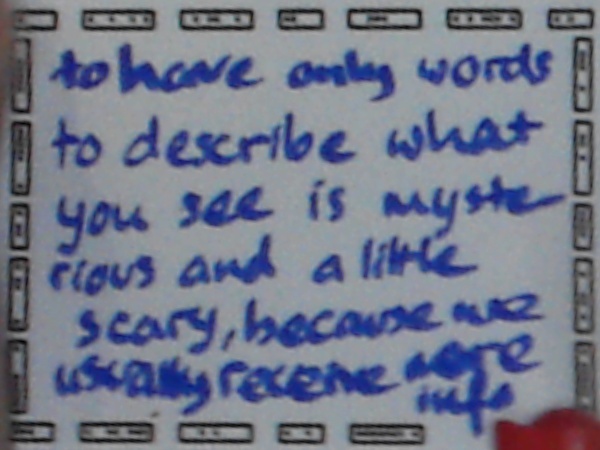 to have only words
to describe what
you see is myste-
rious and a little
scary, because we
usually receive more
info